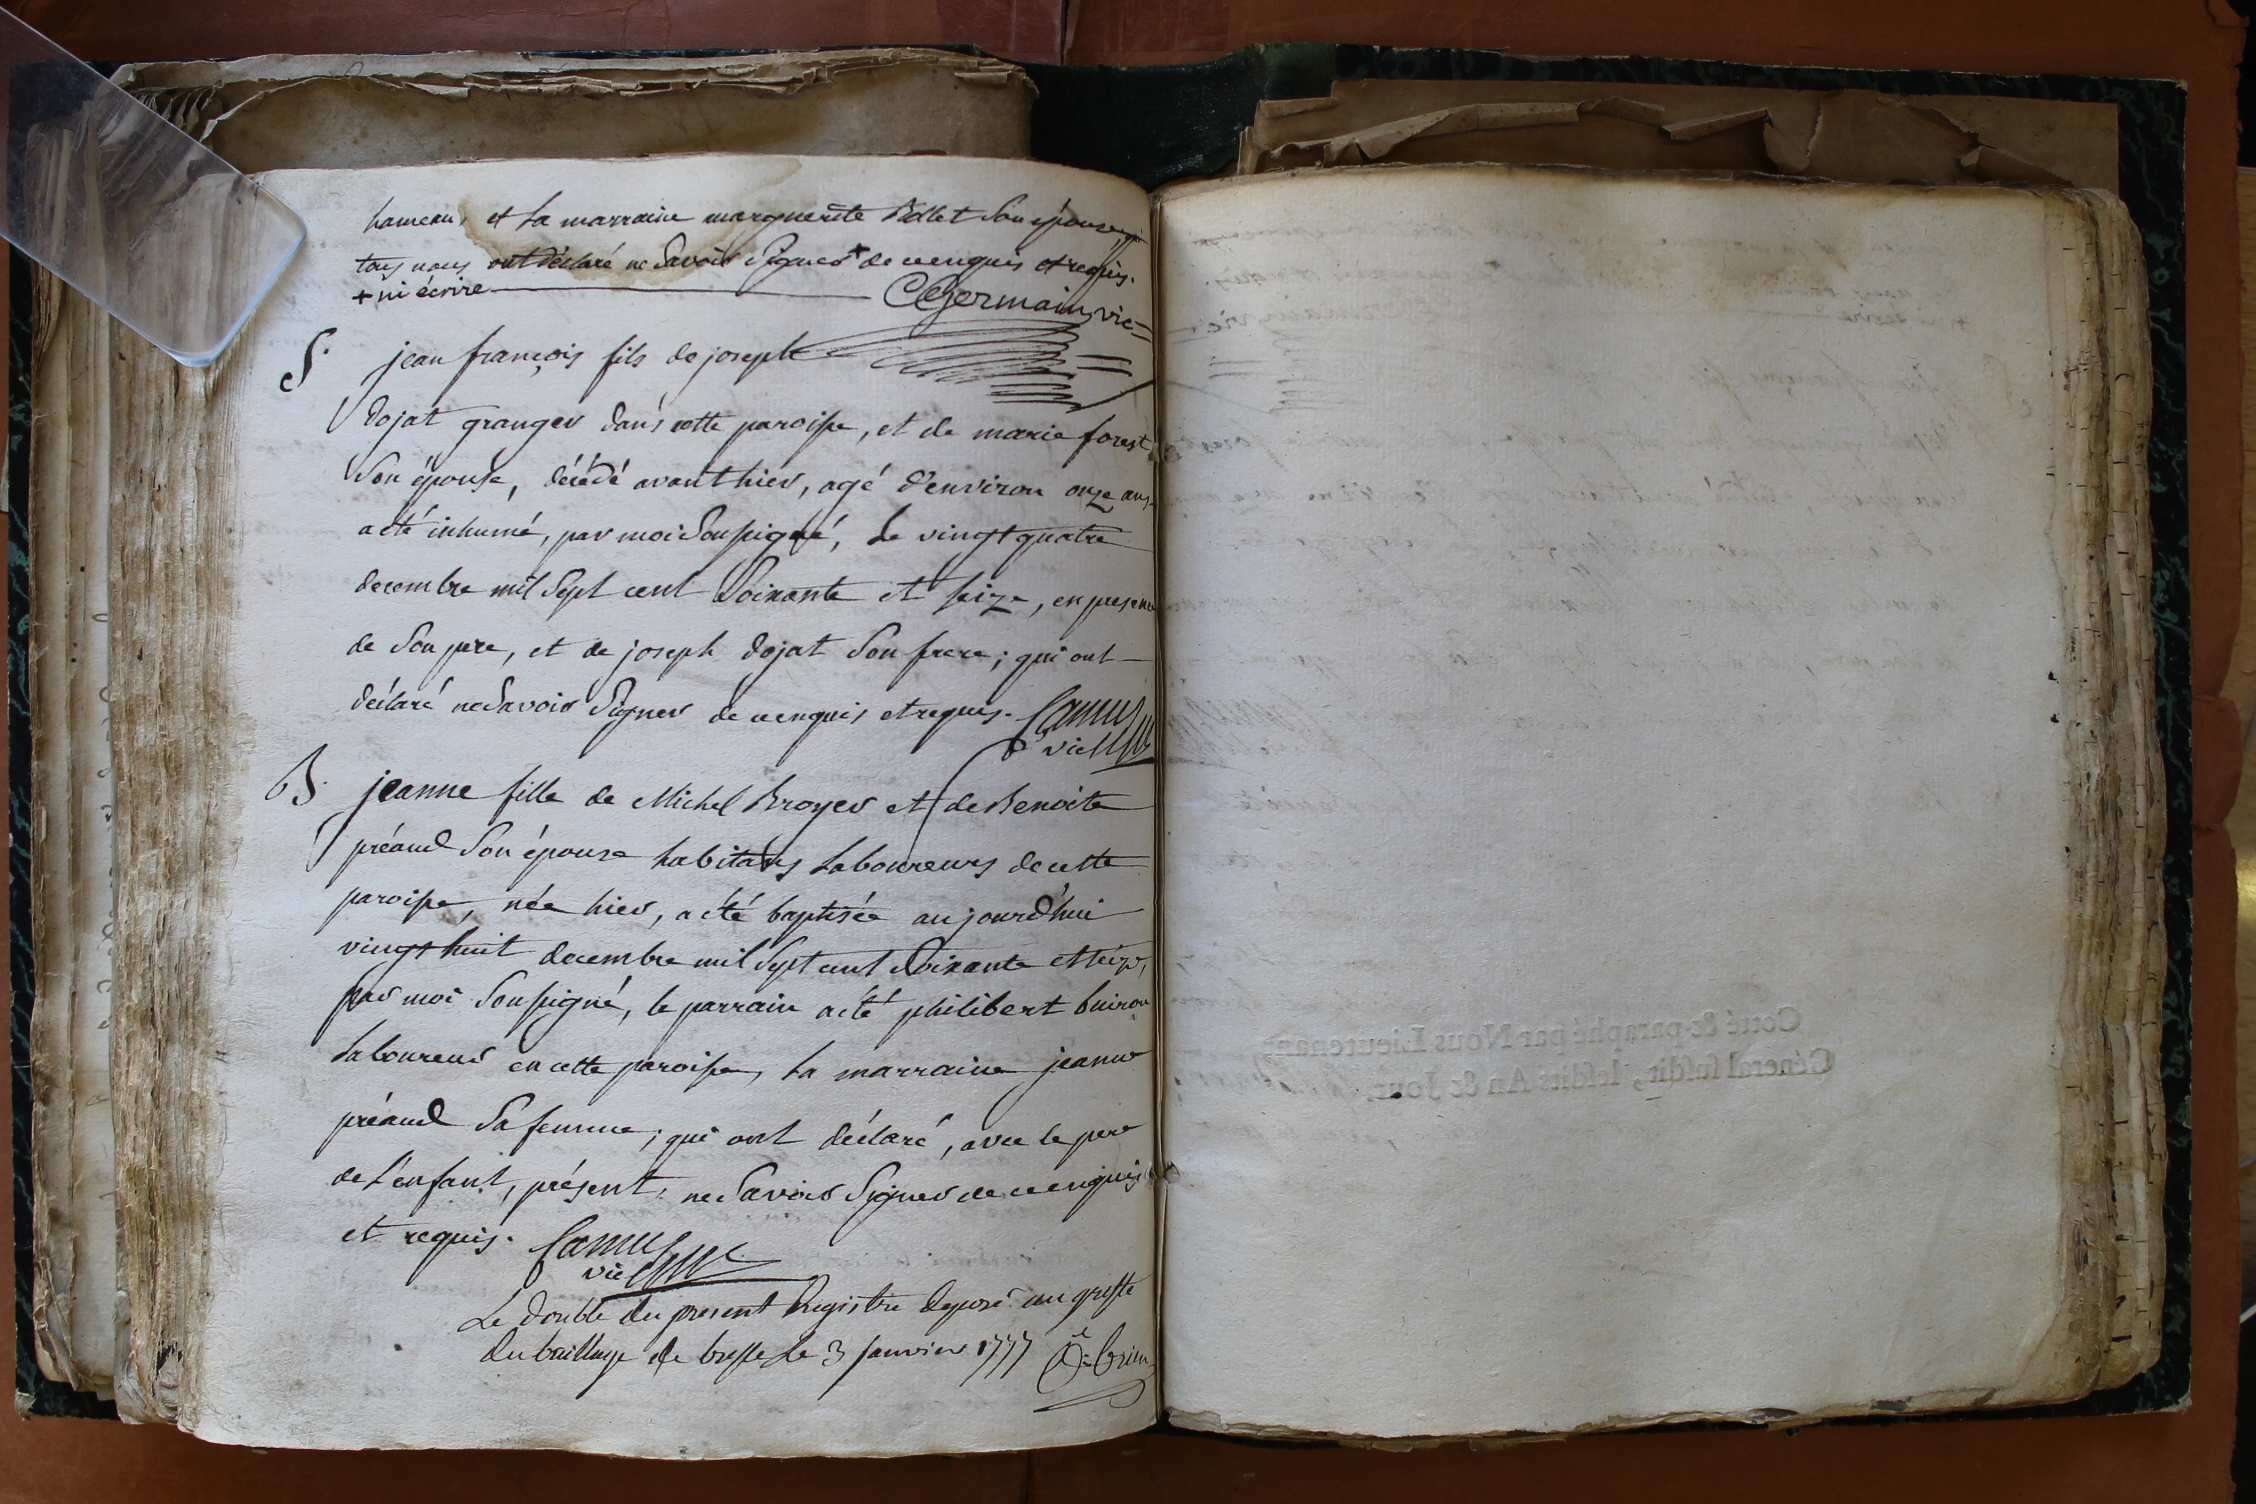 hameau, et la marraine marguerite Bollet son épouse, qui
tous nous ont déclaré ne savoir signer + de ce enquis et requis.
+ ni écrire CGermain vic
S. jean françois fils de joseph
Dojat granger dans cette paroisse, et de marie forest
son épouse, décédé avant hier, agé d'environ onze ans
a été inhumé, par moi soussigné, le vingt quatre
decembre mil sept cent soixante et seize, en presence
de son pere, et de joseph Dojat son frere; qui ont
déclaré ne savoir signer de ce enquis et requis. Camus
vic
B. jeanne fille de Michel Broyer et de Benoite
préaud son épouse habitans laboureurs de cette
paroisse, née hier, a été baptisée aujourd'hui
vingt huit decembre mil sept cent soixante et seize,
par moi soussigné, le parrain a été philibert buiron
laboureur en cette paroisse, la marraine jeanne
préaud sa femme; qui ont déclaré, avec le pere
de l'enfant, présent, ne savoir signer de ce enquis
et requis. Camus
vic
Le double du present Registre deposé au greffe
du bailliage de bresse le 3 janvier 1777
Cotté & paraphé par Nous Lieutenant
Général susdit, lesdits An & Jour.